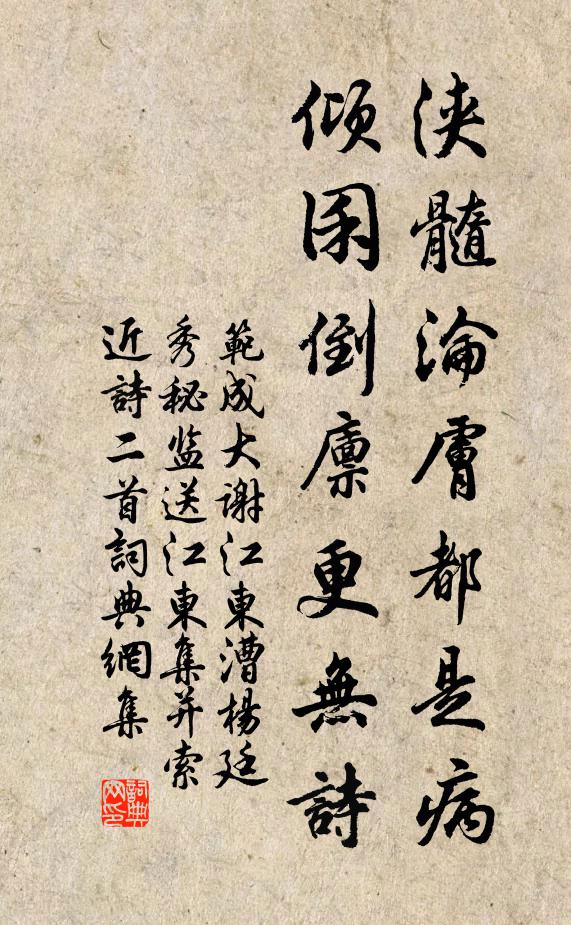 浹髓淪膚都是病
傾囷倒廪更無詩
範成大謝江東漕楊廷
秀秘监送江東集并索
近詩二首詞典網集
詞典
网印